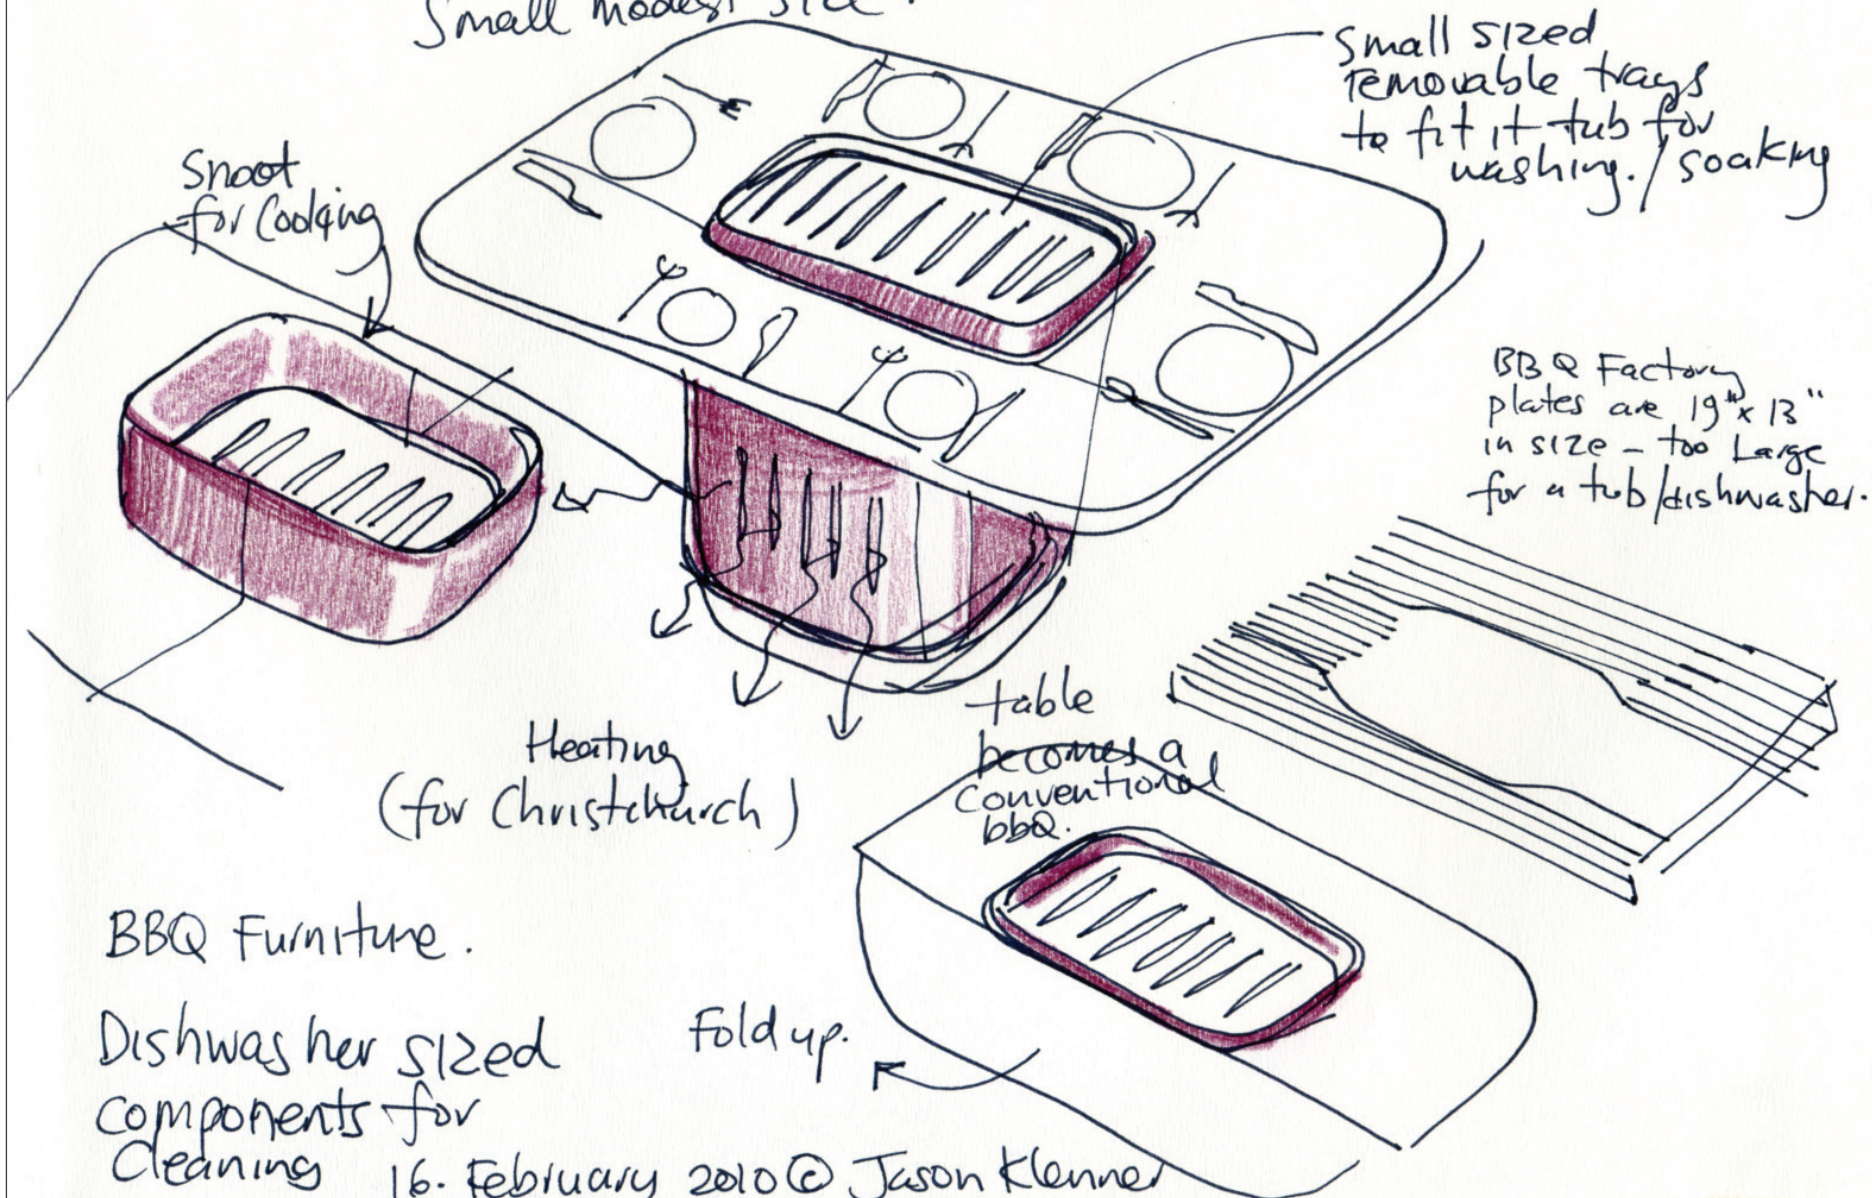 Small modest size.
Small sized
removable trays
to fit it tub for
washing. / soaking
Snoot
for Cooking
BBQ Factory
plates are 19" x 13"
in size - too Large
for a tub/dishwasher.
Heating
(for Christchurch)
table
becomes a
Conventional
bbQ.
BBQ Furniture.
Fold up.
Dishwasher sized
components for
Cleaning
16. February 2010 © Jason Klenner